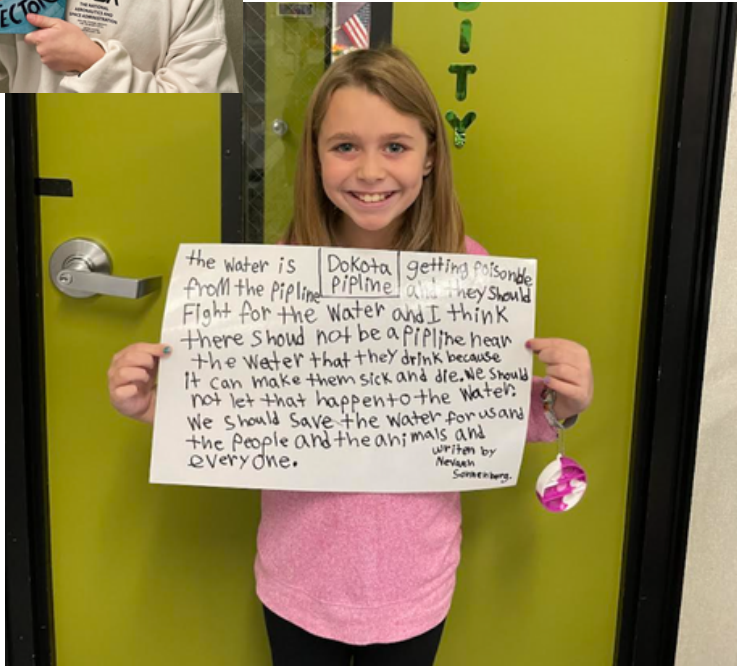 ECTOR
THE NATIONAL
AERONAUTICS AND
SPACE ADMINISTRATION
ITY
DoKota
Pipline
the water is getting poisonde
from the Pipline and they Should
Fight for the Water and I think
there shoud not be a piplihe near
the Water that they drink because
it can make them sick and die. We Should
not let that happen to the Water.
We should Save the Water for us and
the People and the animals and
everyone.
writen by
Nevaeh
Sonnenberg.